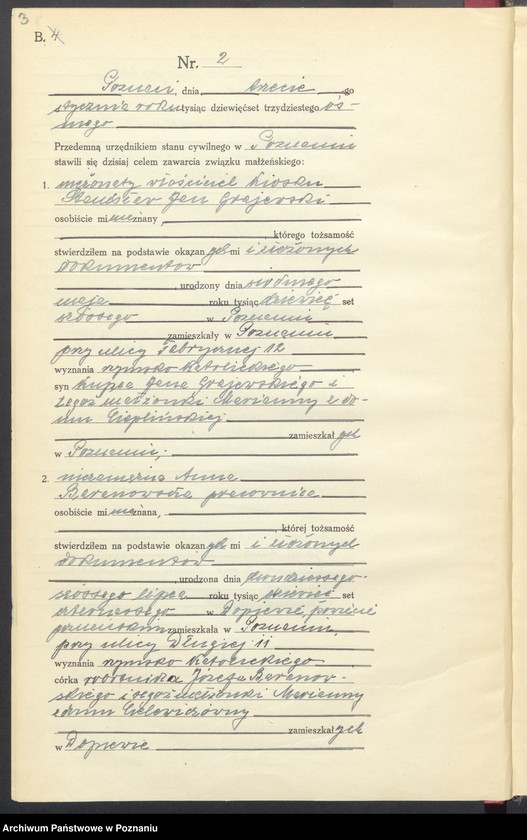 3
B. 4
Nr. 2
Poznań, dnia trzecie go
stycznia roku tysiąc dziewięćset trzydziestego ós-
mego
Przedemną urzędnikiem stanu cywilnego w Poznaniu
stawili się dzisiaj celem zawarcia związku małżeńskiego:
1. nieżonaty właściciel kiosku
Stanisław Jan Grajewski
osobiście mi nieznany,
, którego tożsamość
stwierdziłem na podstawie okazanych mi i złożonych
dokumentów
, urodzony dnia siódmego
maja roku tysiąc dziewięć set
szóstego w Poznaniu
zamieszkały w Poznaniu
przy ulicy Fabrycznej 12
wyznania rzymsko katolickiego,
syn kupca Jana Grajewskiego i
tegoż małżonki Marianny z do-
mu Cieplińskiej
zamieszkałych
w Poznaniu;
2. niezamężna Anna
Baranowska pracownica
osobiście mi nieznana,
, której tożsamość
stwierdziłem na podstawie okazanych mi i złożonych
dokumentów
, urodzona dnia dwudziestego-
szóstego lipca roku tysiąc dziewięć set
czternastego w Dopiewie powiecie
poznańskim zamieszkała w Poznaniu,
przy ulicy Długiej 11
wyznania rzymsko katolickiego
córka robotnika Józefa Baranow-
skiego i tegoż małżonki Marianny
z domu
zamieszkałych
w Dopiewie
Archiwum Państwowe w Poznaniu